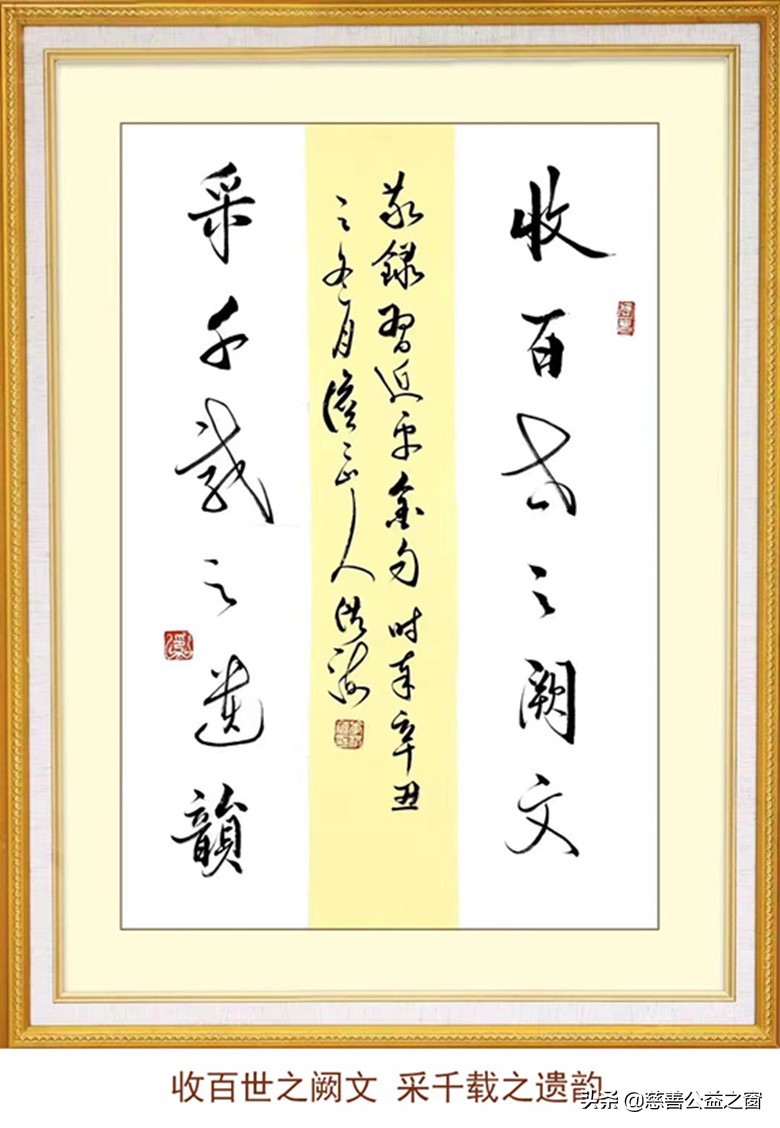 收百世之阙文
敬錄習近平金句时年辛丑
之冬月山人洪海
采千載之遺韻
收百世之阙文 采千载之遗韵
头条 @慈善公益之窗